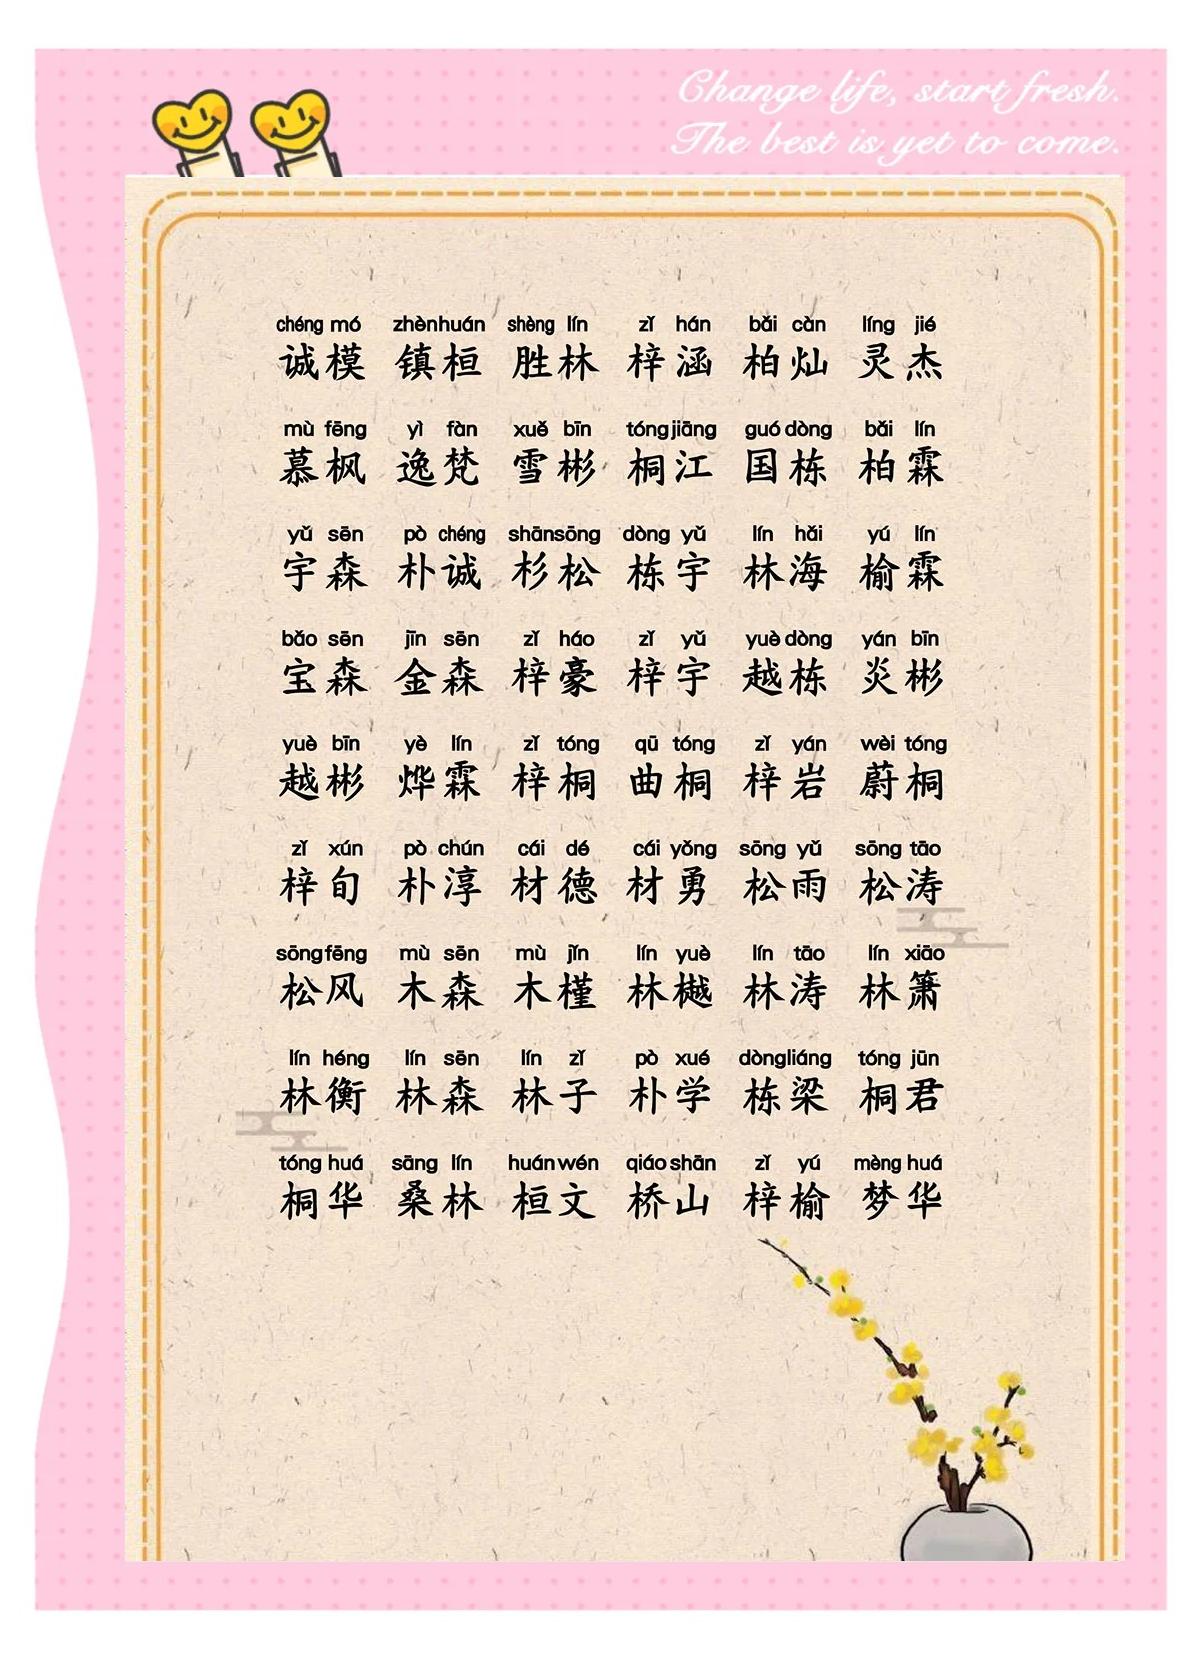 Change life, start fresh.
The best is yet to come.
chéng mó zhèn huán shèng lín zǐ hán bǎi càn líng jié
诚模 镇桓 胜林 梓涵 柏灿 灵杰
mù fēng yì fàn xuě bīn tóng jiāng guó dòng bǎi lín
慕枫 逸梵 雪彬 桐江 国栋 柏霖
yǔ sēn pò chéng shān sōng dòng yǔ lín hǎi yú lín
宇森 朴诚 杉松 栋宇 林海 榆霖
bǎo sēn jīn sēn zǐ háo zǐ yǔ yuè dòng yán bīn
宝森 金森 梓豪 梓宇 越栋 炎彬
yuè bīn yè lín zǐ tóng qū tóng zǐ yán wèi tóng
越彬 烨霖 梓桐 曲桐 梓岩 蔚桐
zǐ xún pò chún cái dé cái yǒng sōng yǔ sōng tāo
梓旬 朴淳 材德 材勇 松雨 松涛
sōng fēng mù sēn mù jǐn lín yuè lín tāo lín xiāo
松风 木森 木槿 林樾 林涛 林箫
lín héng lín sēn lín zǐ pò xué dòng liáng tóng jūn
林衡 林森 林子 朴学 栋梁 桐君
tóng huá sāng lín huán wén qiáo shān zǐ yú mèng huá
桐华 桑林 桓文 桥山 梓榆 梦华